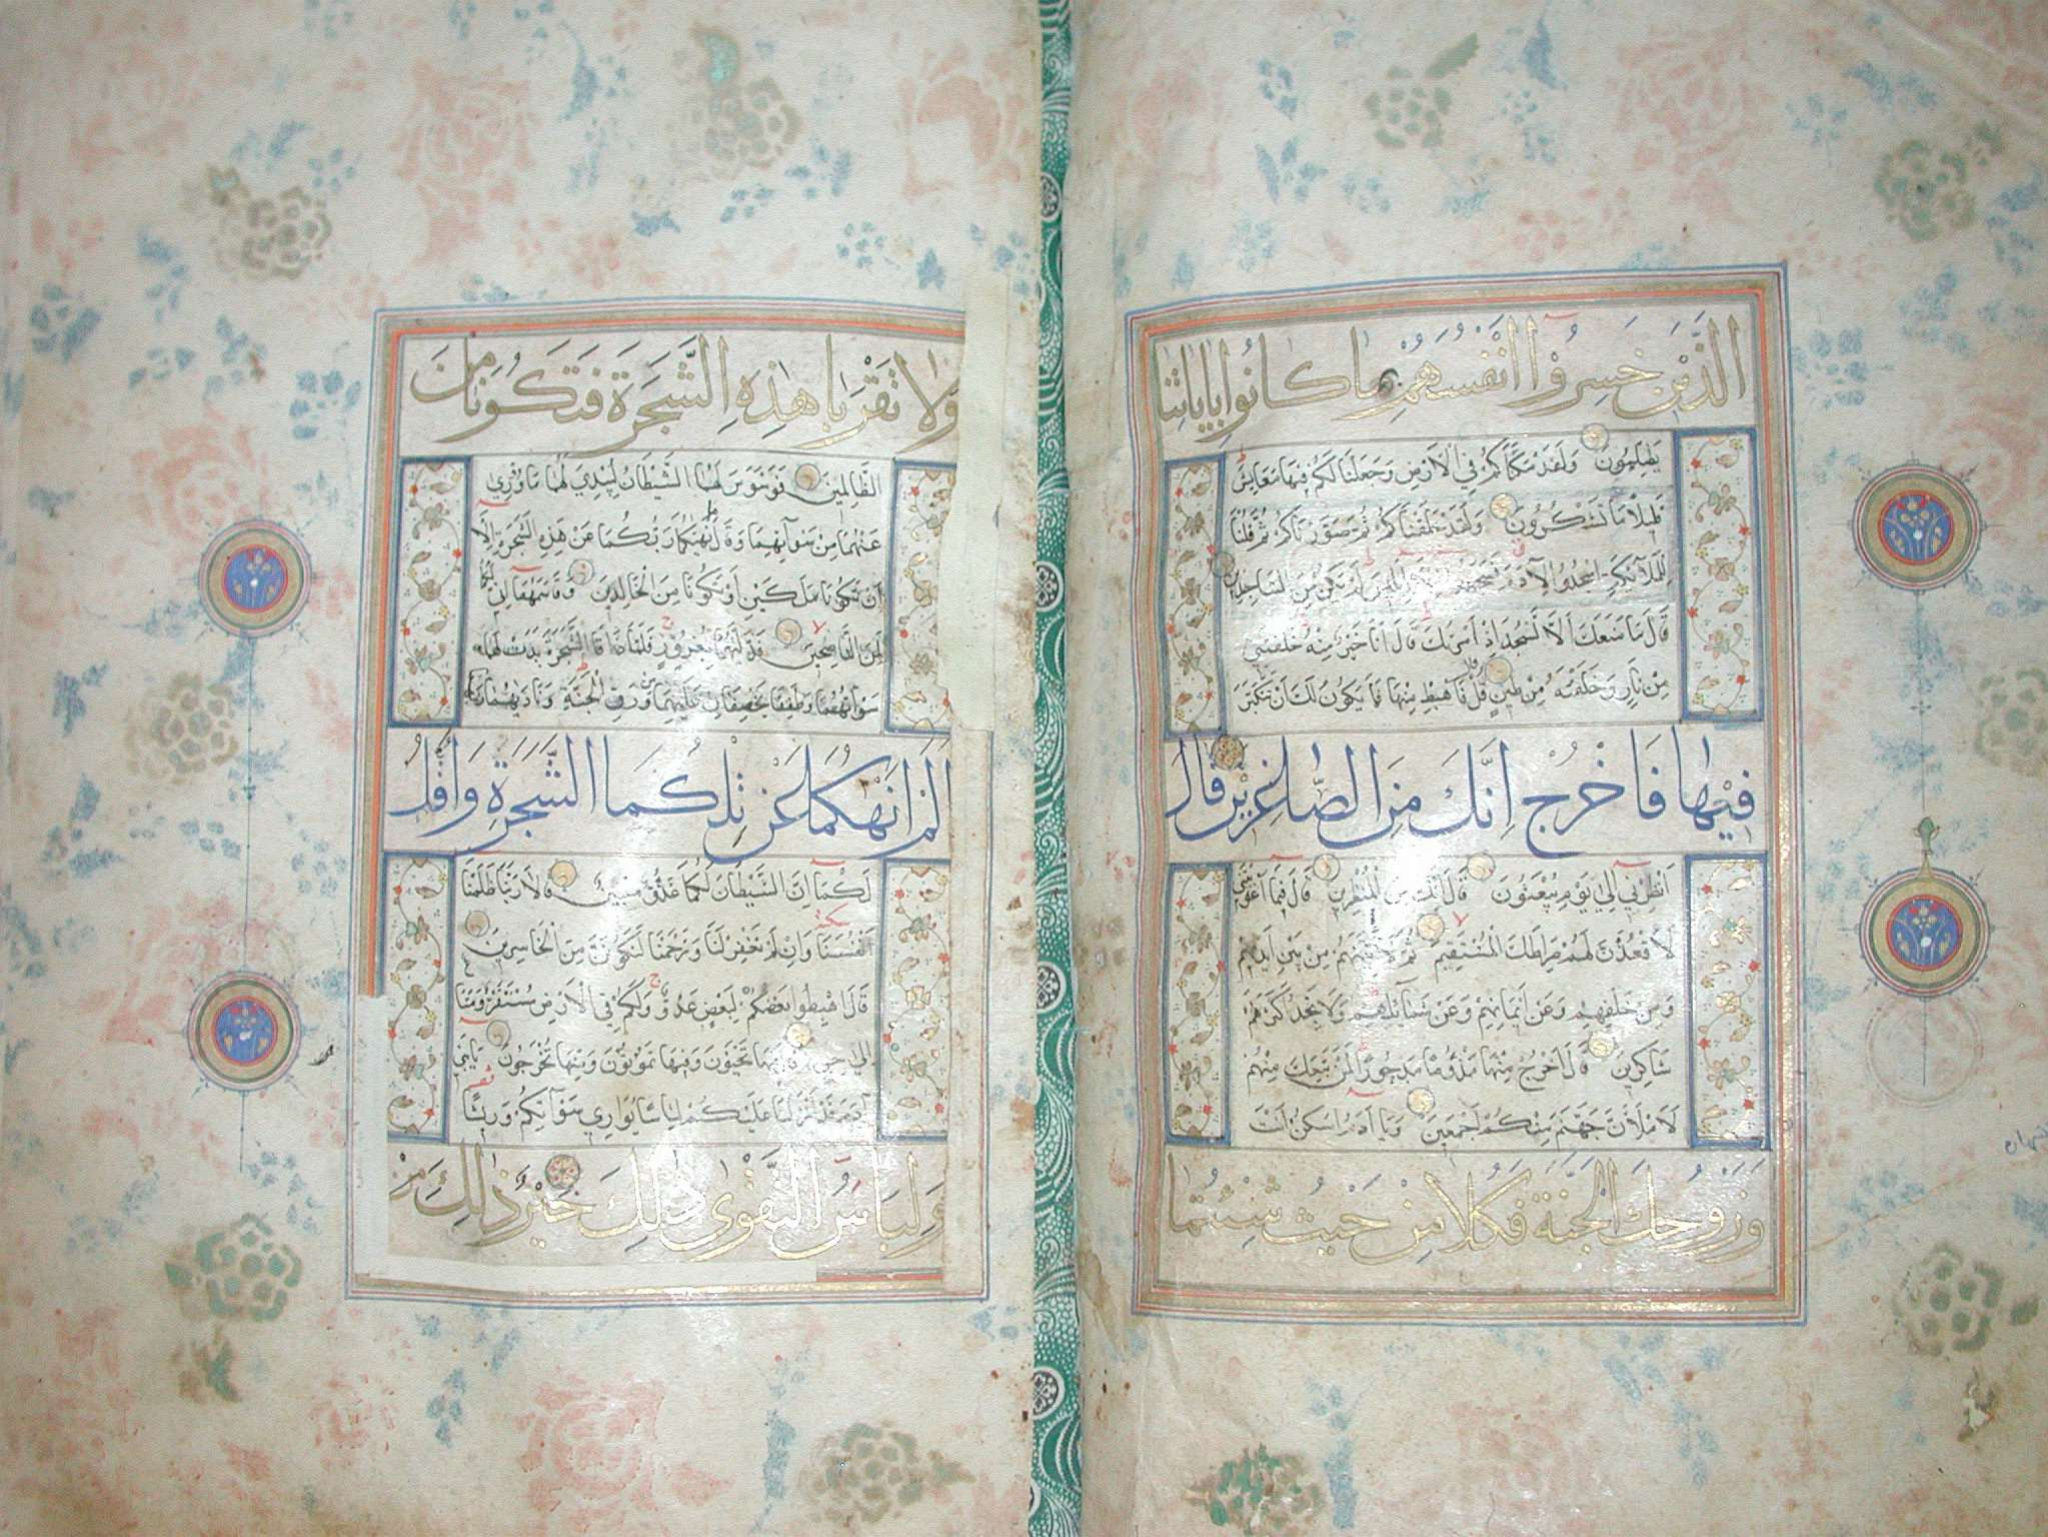 الَّذِينَ خَسِرُوا أَنْفُسَهُمْ بِمَا كَانُوا بِآيَاتِنَا
يَظْلِمُونَ وَلَقَدْ مَكَّنَّاكُمْ فِي الْأَرْضِ وَجَعَلْنَا لَكُمْ فِيهَا مَعَايِشَ
قَلِيلًا مَا تَشْكُرُونَ وَلَقَدْ خَلَقْنَاكُمْ ثُمَّ صَوَّرْنَاكُمْ ثُمَّ قُلْنَا
لِلْمَلَائِكَةِ اسْجُدُوا لِآدَمَ فَسَجَدُوا إِلَّا إِبْلِيسَ لَمْ يَكُنْ مِنَ السَّاجِدِينَ
قَالَ مَا مَنَعَكَ أَلَّا تَسْجُدَ إِذْ أَمَرْتُكَ قَالَ أَنَا خَيْرٌ مِنْهُ خَلَقْتَنِي
مِنْ نَارٍ وَخَلَقْتَهُ مِنْ طِينٍ قَالَ فَاهْبِطْ مِنْهَا فَمَا يَكُونُ لَكَ أَنْ تَتَكَبَّرَ
فِيهَا فَاخْرُجْ إِنَّكَ مِنَ الصَّاغِرِينَ قَالَ
أَنْظِرْنِي إِلَى يَوْمِ يُبْعَثُونَ قَالَ إِنَّكَ مِنَ الْمُنْظَرِينَ قَالَ فَبِمَا أَغْوَيْتَنِي
لَأَقْعُدَنَّ لَهُمْ صِرَاطَكَ الْمُسْتَقِيمَ ثُمَّ لَآتِيَنَّهُمْ مِنْ بَيْنِ أَيْدِيهِمْ
وَمِنْ خَلْفِهِمْ وَعَنْ أَيْمَانِهِمْ وَعَنْ شَمَائِلِهِمْ وَلَا تَجِدُ أَكْثَرَهُمْ
شَاكِرِينَ قَالَ اخْرُجْ مِنْهَا مَذْءُومًا مَدْحُورًا لَمَنْ تَبِعَكَ مِنْهُمْ
لَأَمْلَأَنَّ جَهَنَّمَ مِنْكُمْ أَجْمَعِينَ وَيَا آدَمُ اسْكُنْ أَنْتَ
وَزَوْجُكَ الْجَنَّةَ فَكُلَا مِنْ حَيْثُ شِئْتُمَا
وَلَا تَقْرَبَا هَذِهِ الشَّجَرَةَ فَتَكُونَا مِنَ
الظَّالِمِينَ فَوَسْوَسَ لَهُمَا الشَّيْطَانُ لِيُبْدِيَ لَهُمَا مَا وُورِيَ
عَنْهُمَا مِنْ سَوْآتِهِمَا وَقَالَ مَا نَهَاكُمَا رَبُّكُمَا عَنْ هَذِهِ الشَّجَرَةِ إِلَّا
أَنْ تَكُونَا مَلَكَيْنِ أَوْ تَكُونَا مِنَ الْخَالِدِينَ وَقَاسَمَهُمَا إِنِّي لَكُمَا
لَمِنَ النَّاصِحِينَ فَدَلَّاهُمَا بِغُرُورٍ فَلَمَّا ذَاقَا الشَّجَرَةَ بَدَتْ لَهُمَا
سَوْآتُهُمَا وَطَفِقَا يَخْصِفَانِ عَلَيْهِمَا مِنْ وَرَقِ الْجَنَّةِ وَنَادَاهُمَا رَبُّهُمَا
أَلَمْ أَنْهَكُمَا عَنْ تِلْكُمَا الشَّجَرَةِ وَأَقُلْ
لَكُمَا إِنَّ الشَّيْطَانَ لَكُمَا عَدُوٌّ مُبِينٌ قَالَا رَبَّنَا ظَلَمْنَا
أَنْفُسَنَا وَإِنْ لَمْ تَغْفِرْ لَنَا وَتَرْحَمْنَا لَنَكُونَنَّ مِنَ الْخَاسِرِينَ
قَالَ اهْبِطُوا بَعْضُكُمْ لِبَعْضٍ عَدُوٌّ وَلَكُمْ فِي الْأَرْضِ مُسْتَقَرٌّ وَمَتَاعٌ
إِلَى حِينٍ قَالَ فِيهَا تَحْيَوْنَ وَفِيهَا تَمُوتُونَ وَمِنْهَا تُخْرَجُونَ يَا بَنِي
آدَمَ قَدْ أَنْزَلْنَا عَلَيْكُمْ لِبَاسًا يُوَارِي سَوْآتِكُمْ وَرِيشًا
وَلِبَاسُ التَّقْوَى ذَلِكَ خَيْرٌ ذَلِكَ مِنْ